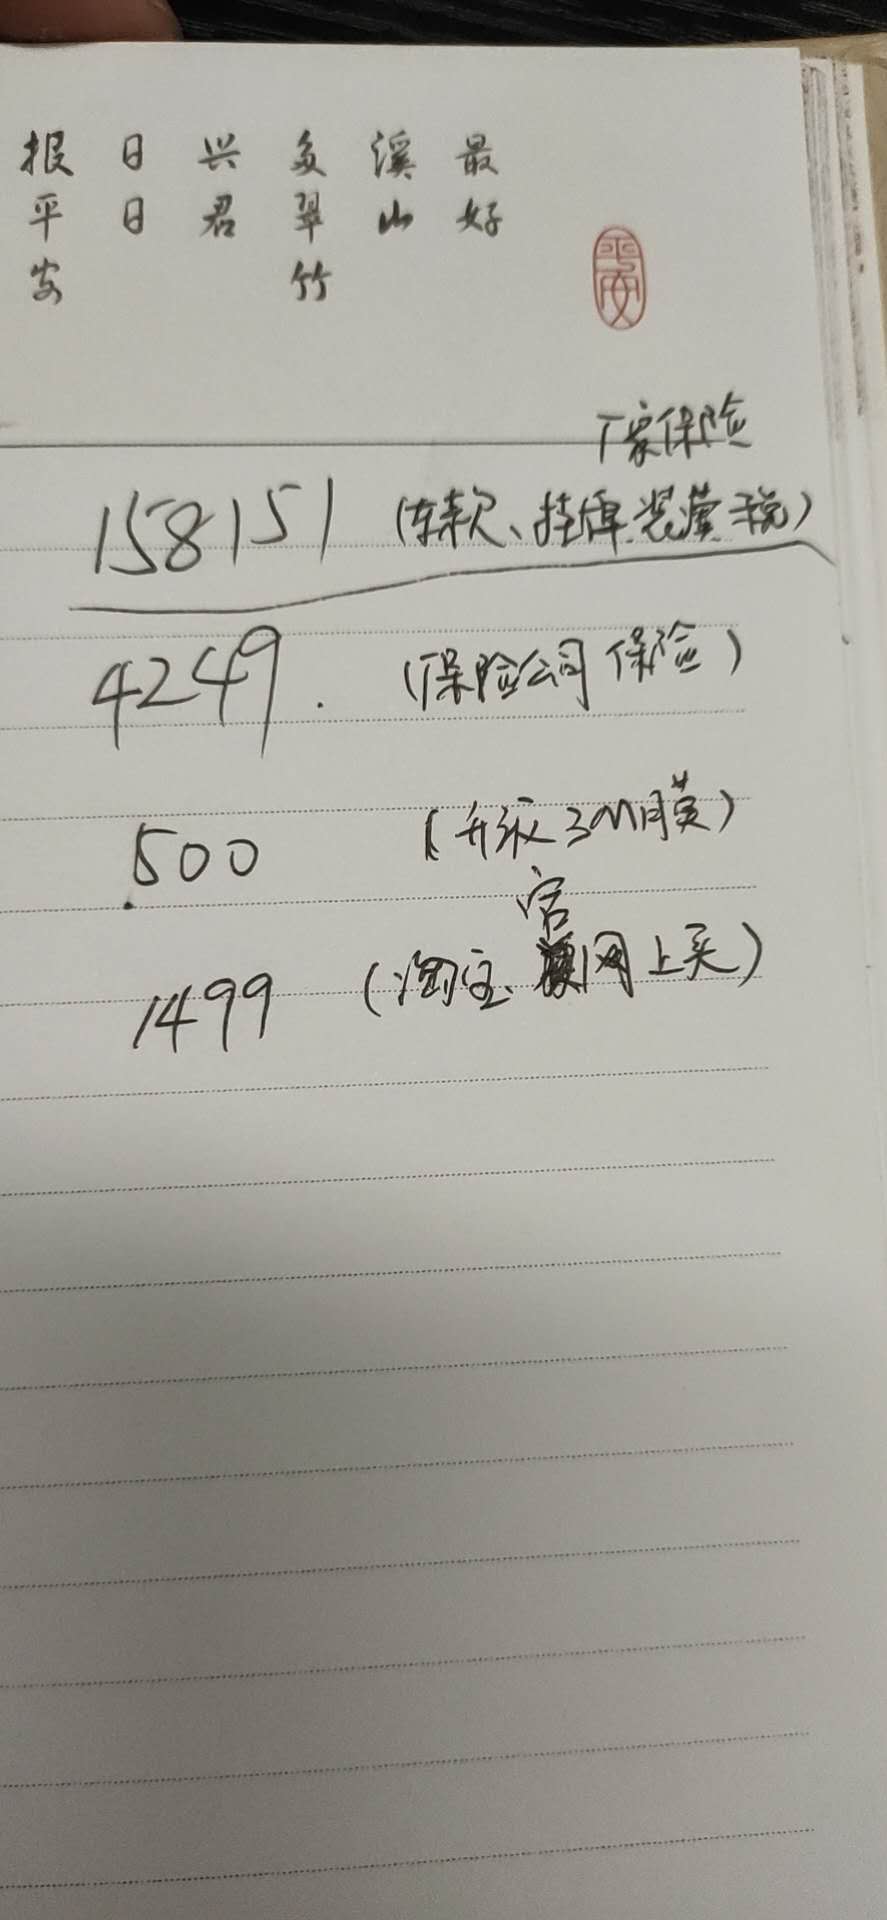 最好
溪山
多翠竹
兴君
日日
报平安
平安
厂家保险
158151 (车款、挂牌.装潢 税)
4249. (保险公司 保险)
500 (升级3M膜)
官
1499 (淘宝、网上买)